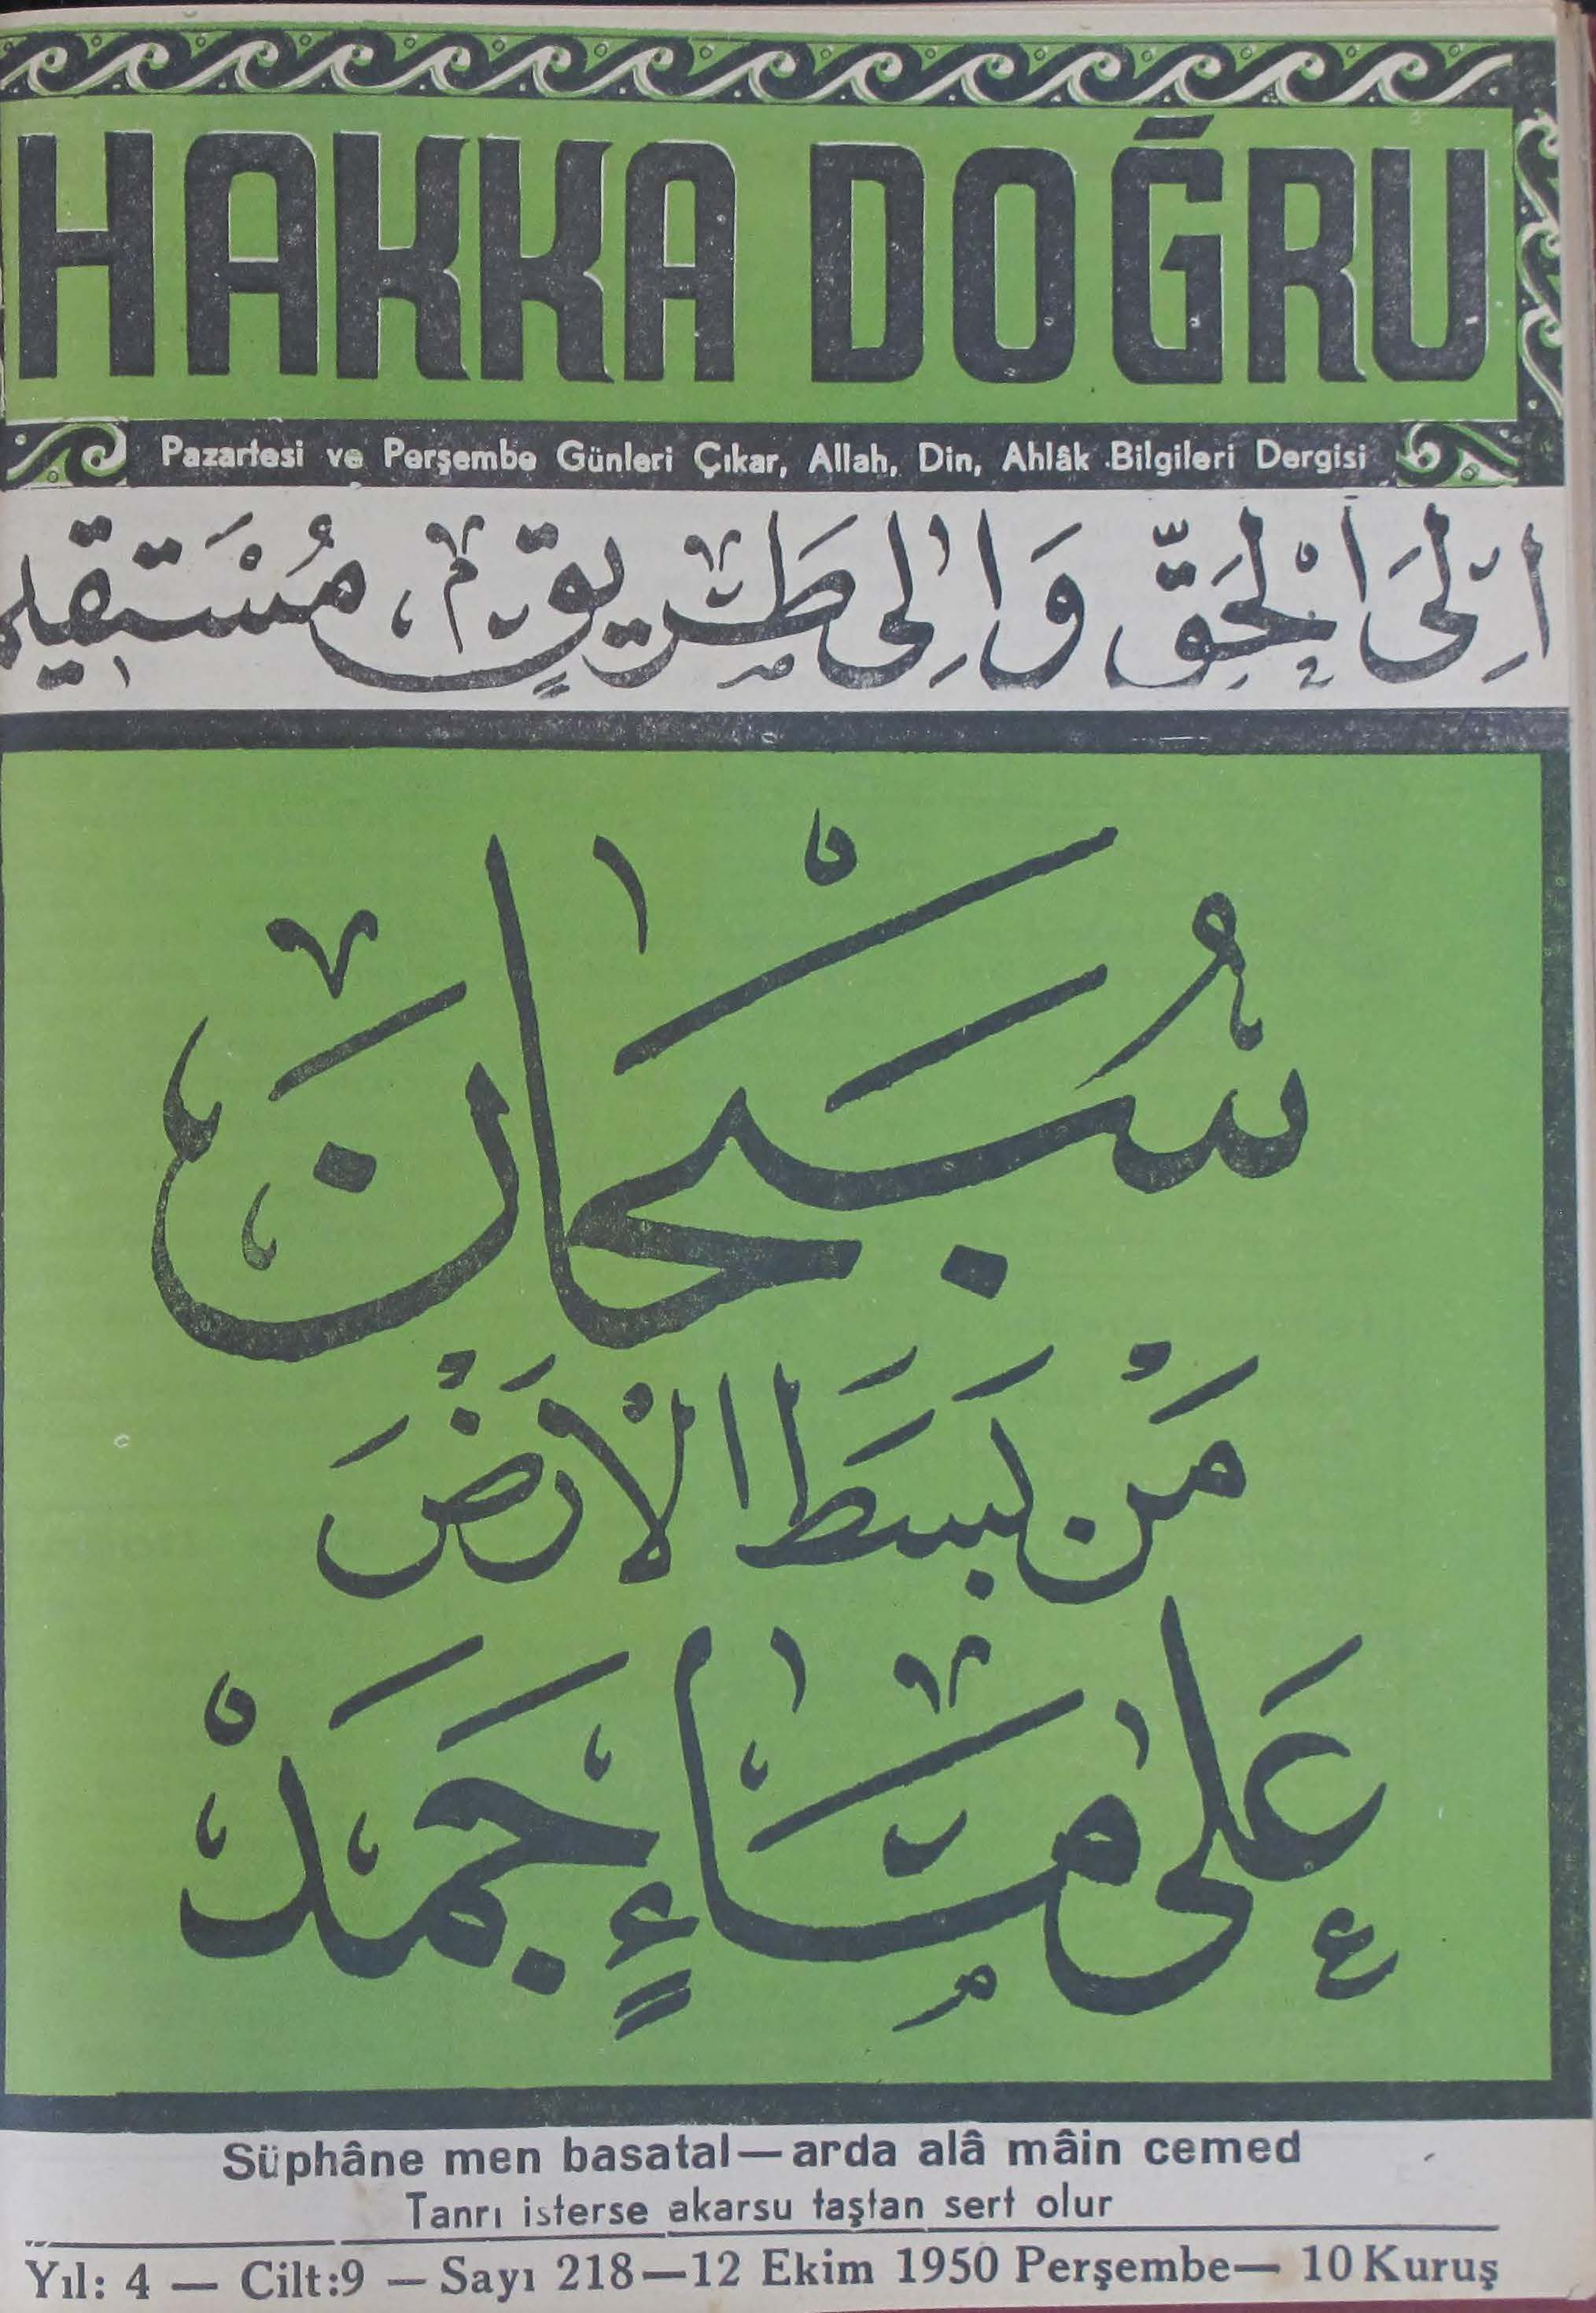 HAKKA DOĞRU
Pazartesi ve Perşembe Günleri Çıkar, Allah, Din, Ahlâk Bilgileri Dergisi
اِلَى الْحَقِّ وَاِلٰى طَرِيقٍ مُسْتَقِيم
سُبْحَانَ
مَنْ بَسَطَ الْاَرْضَ
عَلٰى مَاءٍ جَمَدْ
Süphâne men basatal—arda alâ mâin cemed
Tanrı isterse akarsu taştan sert olur
Yıl: 4 — Cilt:9 — Sayı 218—12 Ekim 1950 Perşembe— 10 Kuruş